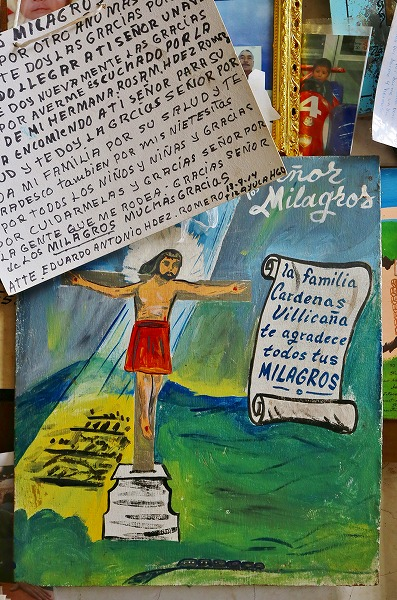 MILAGRO
POR OTRO AÑO MAS POR
TE DOY LAS GRACIAS POR
DO LLEGAR A TI SEÑOR UNA VE
E DOY NUEVAMENTE LAS GRACIAS
POR AVERME ESCUCHADO POR LA
DE MI HERMANA ROSA M. HDEZ ROMERO
A ENCOMIENDO A TI SEÑOR PARA SU
UD Y TE DOY LA GRCIAS SEÑOR POR
DA MI FAMILIA POR SU SALUD Y TE
RADESCO TAMBIEN POR MIS NIETESITOS
POR TODOS LOS NIÑOS Y NIÑAS Y GRACIAS
POR CUIDARMELAS Y GRACIAS SEÑOR POR
LA GENTE QUE ME RODEA. GRACIAS SEÑOR
de LOS MILAGROS MUCHAS GRACIAS 13-9-14
ATTE EDUARDO ANTONIO HDEZ. ROMERO TLAXCALA HGO
Señor
Milagros
la familia
Cardenas
Villicaña
te agradece
todos tus
MILAGROS
4